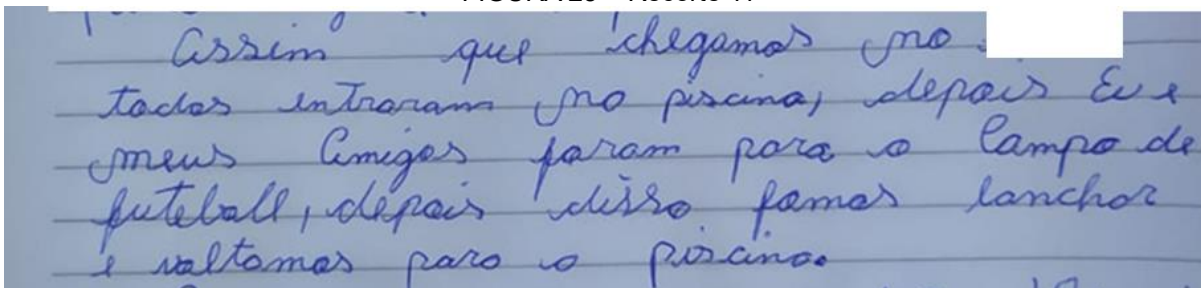 Assim que chegamos no
todos entraram na piscina, depois Eu e
meus Amigos foram para o Campo de
futeball, depois disso fomos lanchar
e voltamos para a piscina.